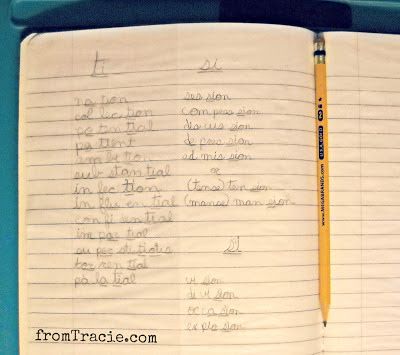 ti
na tion
col lec tion
po ten tial
pa tient
am bi tion
sub stan tial
in fec tion
in flu en tial
con fi den tial
im par tial
su per sti tious
tor ren tial
pa la tial
si
ses sion
com pres sion
dis cus sion
de pres sion
ad mis sion
or
(tense) ten sion
(manse) man sion
si
vi sion
di vi sion
oc ca sion
ex plo sion
WWW.MEGABRANDS.COM
fromTracie.com